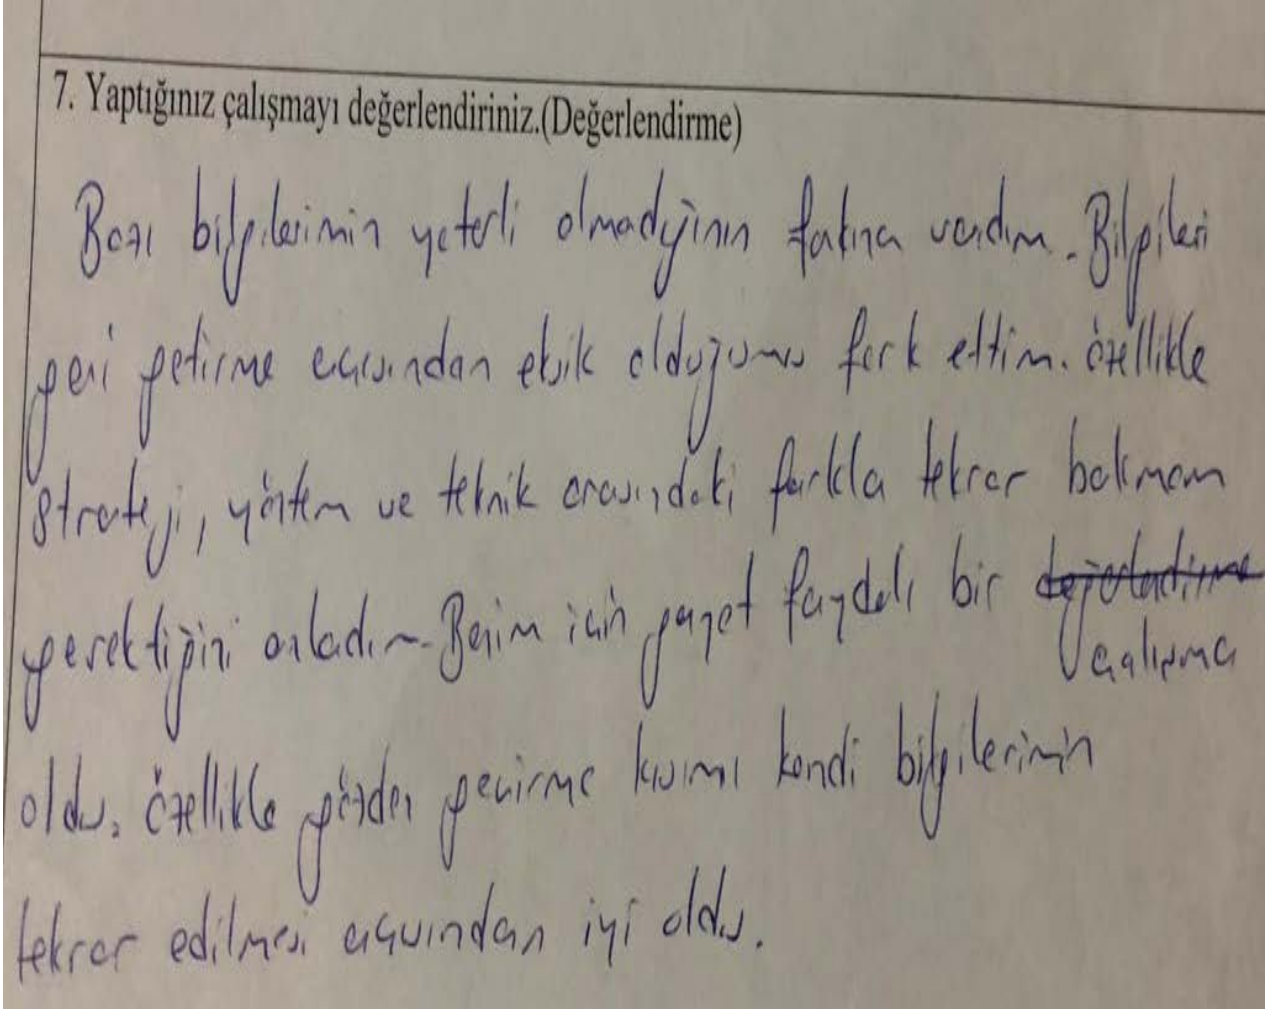 7. Yaptığınız çalışmayı değerlendiriniz.(Değerlendirme)
Bazı bilgilerimin yeterli olmadığının farkına vardım. Bilgileri
geri getirme açısından eksik olduğumu fark ettim. özellikle
strateji, yöntem ve teknik arasındaki farkla tekrar bakmam
gerektiğini anladım. Benim için gayet faydalı bir değerlendirme
çalışma
oldu. özellikle gözden geçirme kısımı kendi bilgilerimin
tekrar edilmesi açısından iyi oldu.